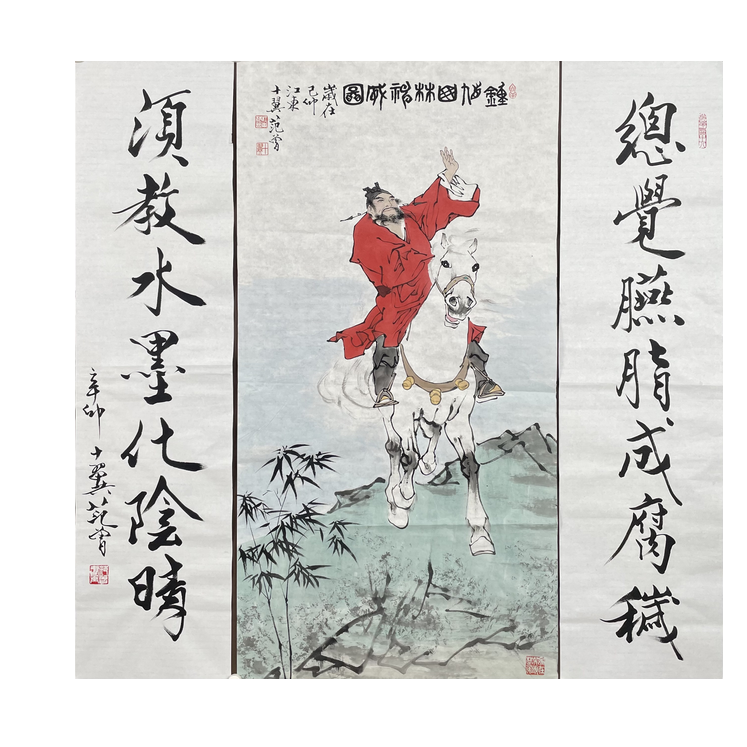 總覺臙脂成腐穢
鍾馗國林神威圖
歲在
己卯
江東
十翼范曾
須教水墨化陰晴
辛卯十翼范曾